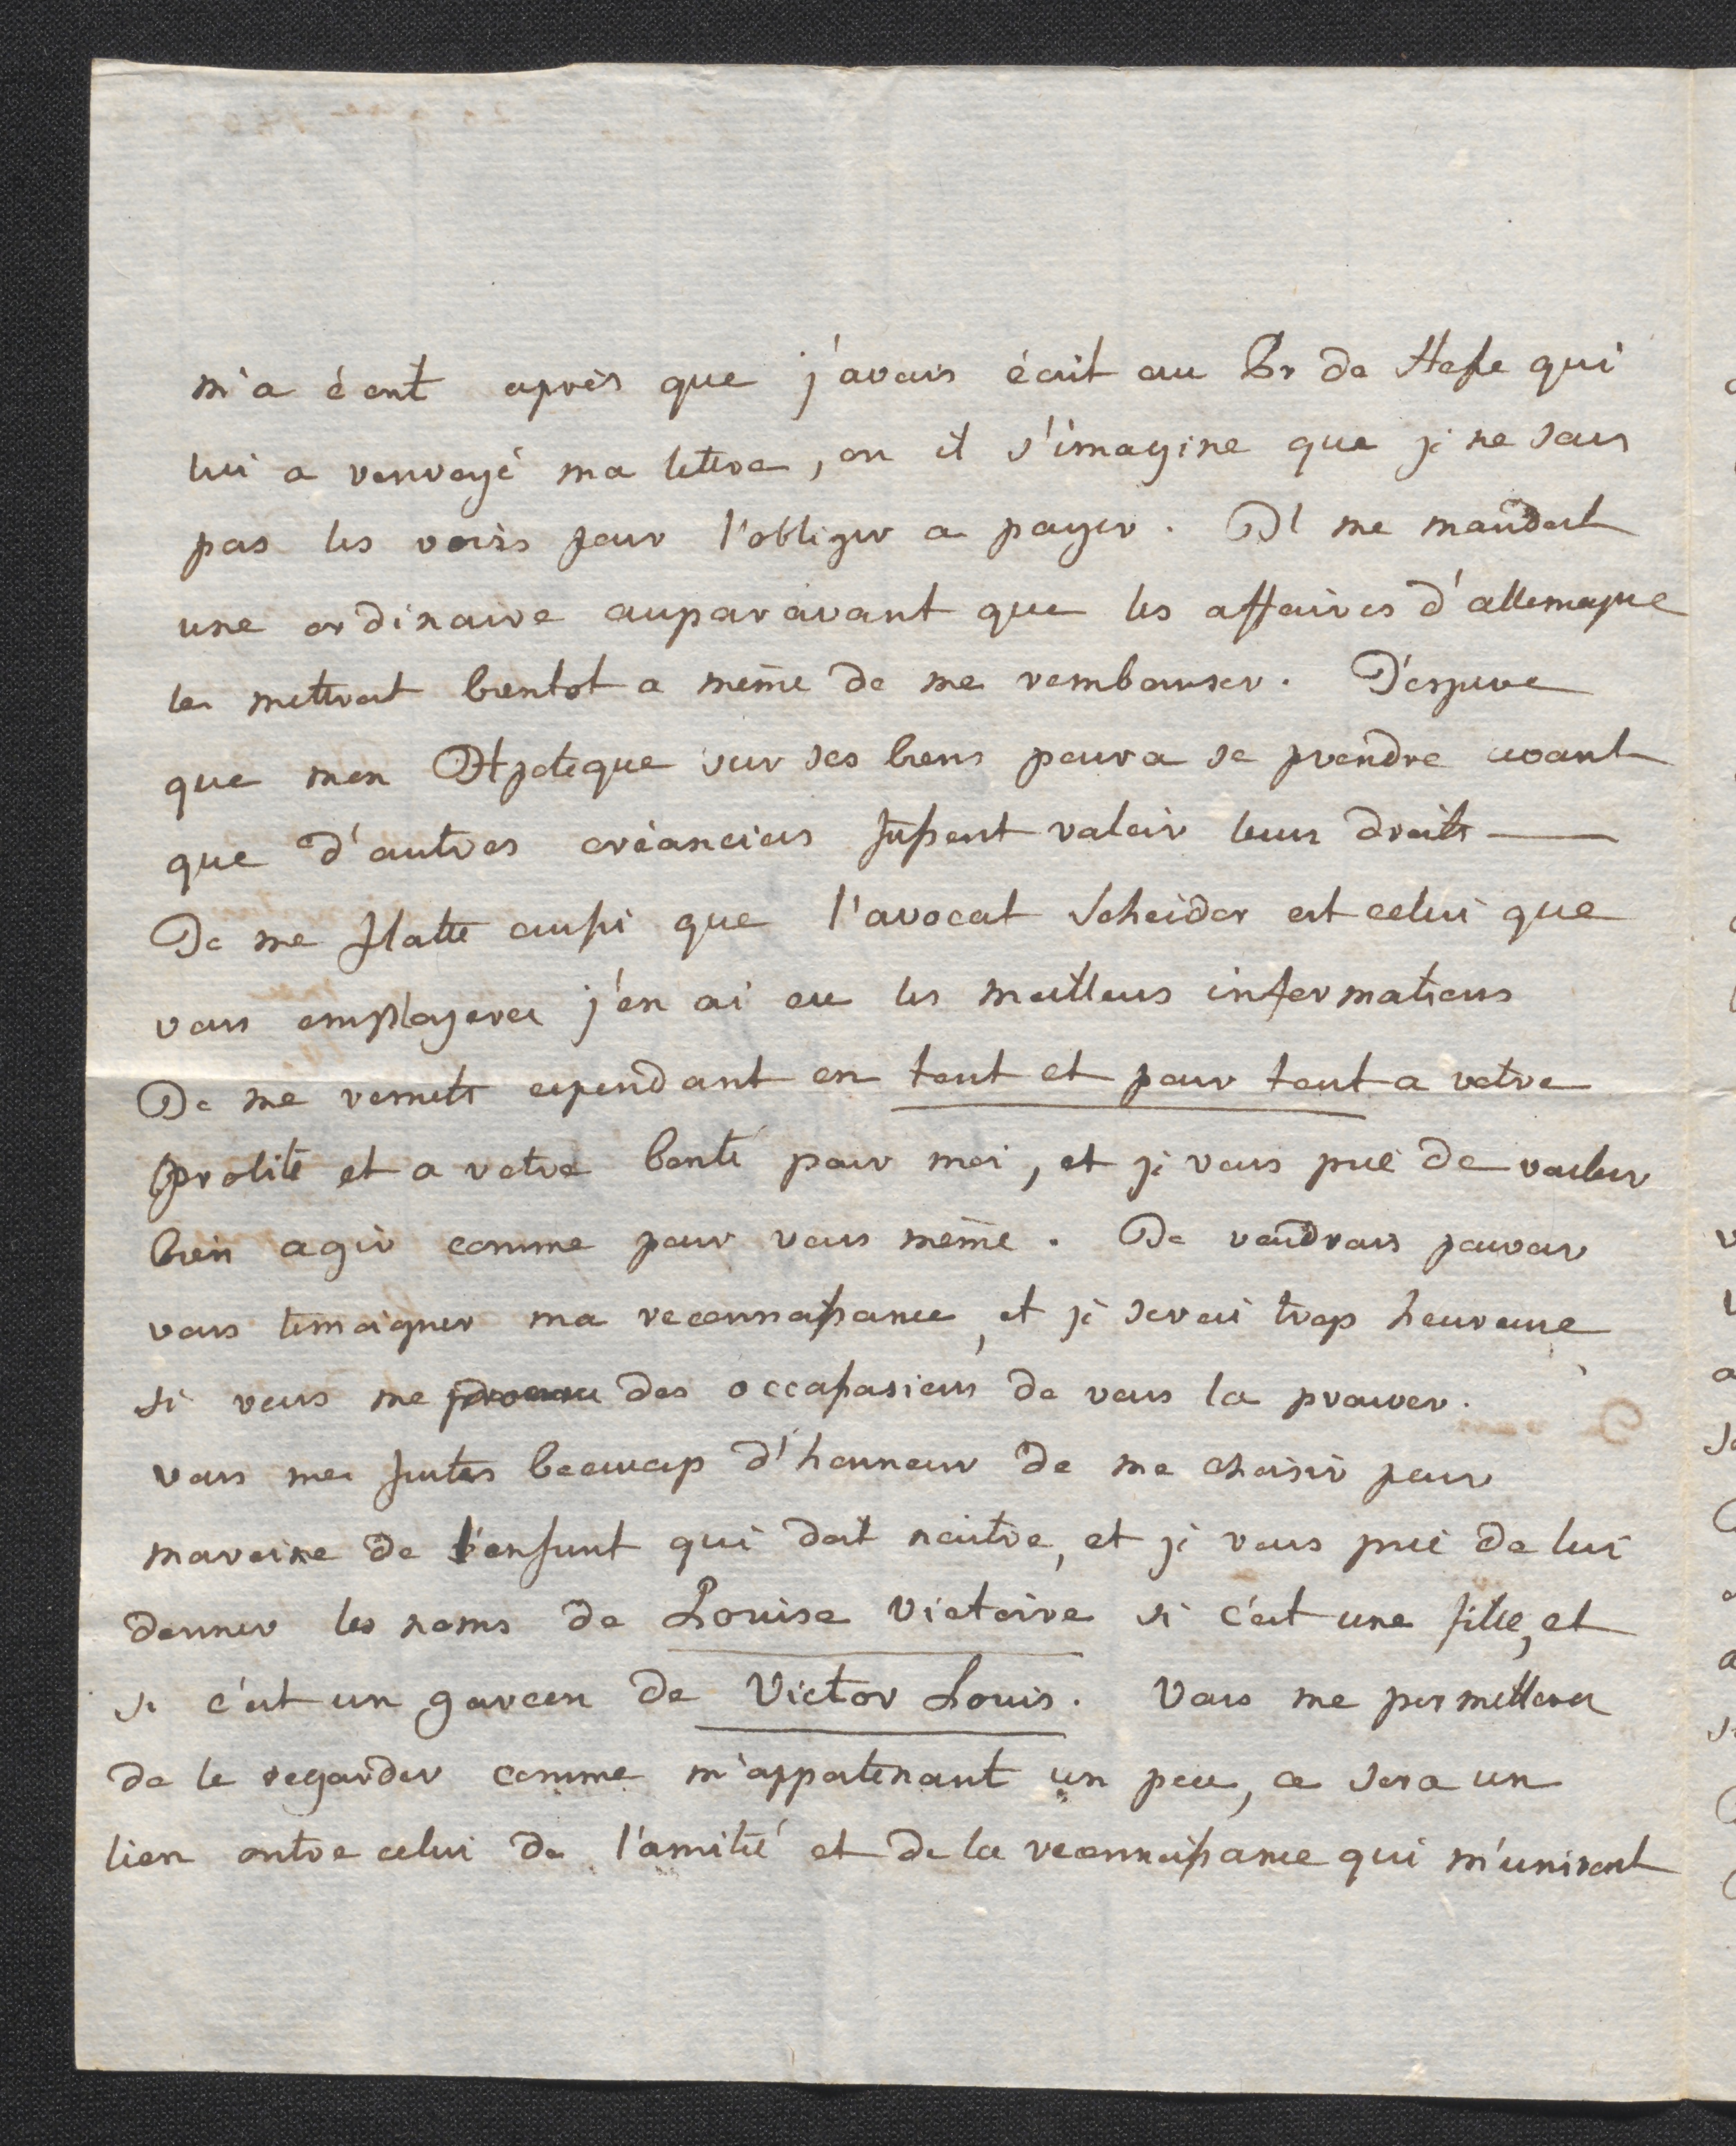 m'a écrit après que j'avais écrit au Pr de Hesse qui
lui a renvoyé ma lettre, ou il s'imagine que je ne sais
pas les voiës pour l'obliger a payer. Il me mandoit
une ordinaire auparavant que les affaires d'allemagne
le mettroit bientot a même de me rembourser. J'espere
que mon Hypoteque sur ses biens poura se prendre avant
que d'autres créanciers fussent valoir leurs droits —
Je me flatte aussi que l'avocat Scheider est celui que
vous employerez j'en ai eu les meilleurs informations
Je me remets cependant en tout et pour tout a votre
probité et a votre bonté pour moi, et je vous prie de vouloir
bien agir comme pour vous même. Je voudrais pouvoir
vous temoigner ma reconnaissance, et je serai trop heureuse
si vous me des occassasions de vous la prouver.
vous me faites beaucoup d'honneur de me choisir pour
maraine de l'enfant qui doit naitre, et je vous prie de lui
donner les noms de Louise Victoire si c'est une fille, et
si c'est un garcon de Victor Louis. Vous me permetterez
de le regarder comme m'appartenant un peu, ce sera un
lien outre celui de l'amitié et de la reconnaissance qui m'unisent